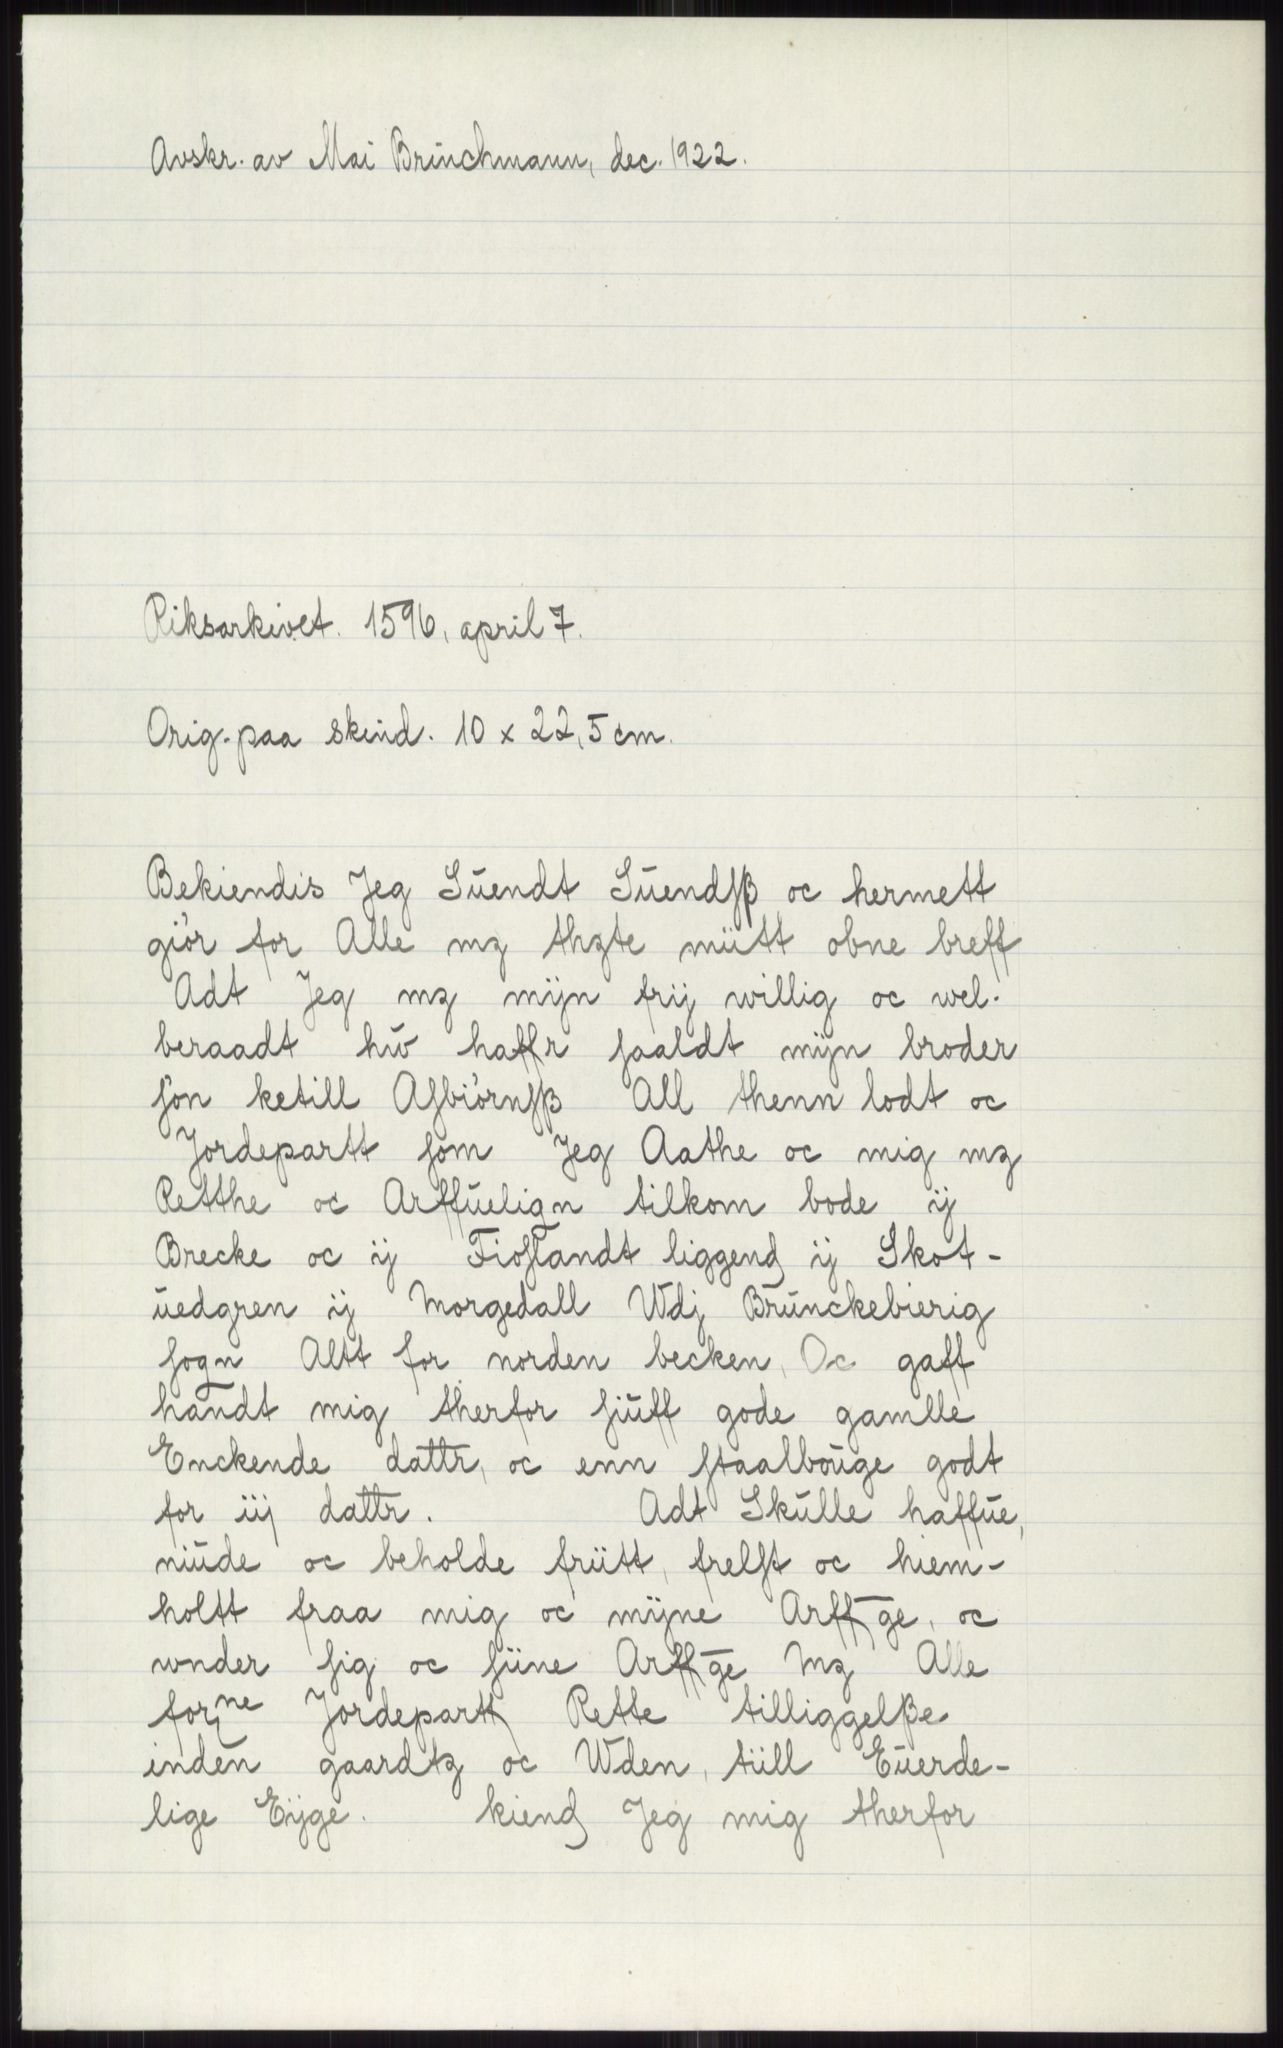 Avskr. av Mai Brinchmann, dec. 1922.
Riksarkivet. 1596, april 7.
Orig. paa skind. 10 x 22,5 cm.
Bekiendis Jeg Suendt Suendſß oc hermett
giör for Alle mꝫ thꝫte mütt obne breff
Adt Jeg mꝫ mijn frij willig oc wel-
beraadt hŭ haffr ſaaldt mijn broder
ſön ketill Aſbiörnſß All thenn lodt oc
Jordepartt ſom Jeg Aathe oc mig mꝫ
Retthe oc Arffŭelign tilkom bode ij
Brecke oc ij Fioſlandt liggend ij Skot-
ŭedgren ij Morgedall Wdj Brŭnckebierig
ſogn Altt for norden becken, Oc gaff
handt mig therfor ſiŭff gode gamlle
Enckende dattr, oc enn ſtaalboŭge godt
for iij dattr. Adt Skŭlle haffŭe,
niŭde oc beholde friitt, frelſt oc hiem-
holtt fraa mig oc mijne Arffge, oc
wnder ſig oc ſiine Arffge Mꝫ Alle
forne Jordepartt Rette tilliggelße
inden gaardtꝫ oc Wden, tiill Eŭerde-
lige Eijge. kiend Jeg mig therfor